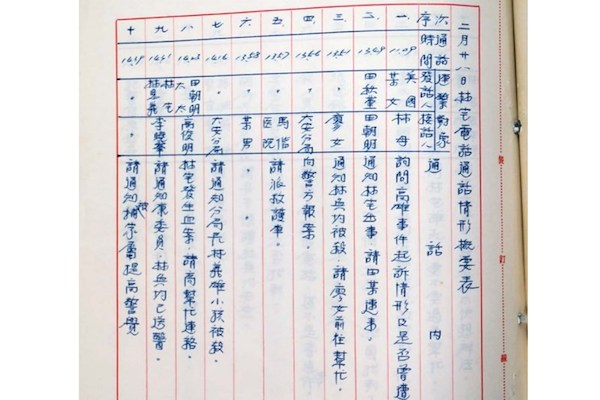 二月廿八日林宅電話通話情形概要表
次序 通話時間 連繫對象 發話人 接話人 通話內
一、 11.09 英國某女 林母 詢問高雄事件起訴情形及是否曾遭
二、 13.49 田秋堇 田朝明 通知林宅出事,請田某速來。
三、 13.51 〃 廖女 通知林 均被殺,請廖女前往幫忙。
四、 〃 大安分局 向警方報案。
五、 13.57 〃 馬偕医院 請派救護車。
六、 13.58 〃 某男 〃
七、 14.16 〃 大安分局 請通知分局長林義雄小孩被殺。
八、 14.23 田朝明太太 高俊明 林宅發生血案,請高幫忙連絡。
九、 林宅 請通知康委員,林 均已送醫。
十、 〃 請通知被捕家屬提高警覺
裝
訂
線